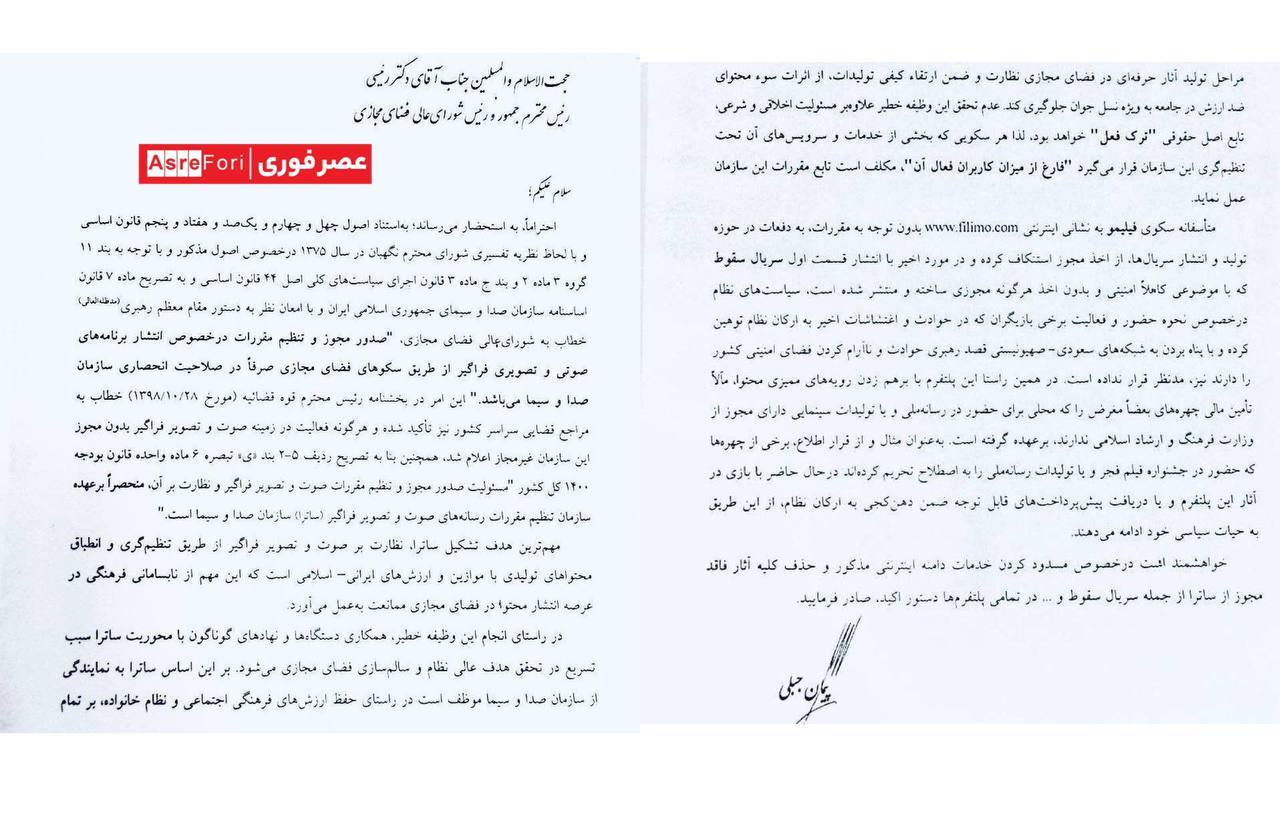 حجت‌الاسلام والمسلمین جناب آقای دکتر رئیسی
رئیس محترم جمهور و رئیس شورای‌عالی فضای مجازی
AsreFori | عصر فوری
سلام علیکم؛
احتراماً، به استحضار می‌رساند؛ به‌استناد اصول چهل و چهارم و یک‌صد و هفتاد و پنجم قانون اساسی
و با لحاظ نظریه تفسیری شورای محترم نگهبان در سال ۱۳۷۵ درخصوص اصول مذکور و با توجه به بند ۱۱
گروه ۳ ماده ۲ و بند ج ماده ۳ قانون اجرای سیاست‌های کلی اصل ۴۴ قانون اساسی و به تصریح ماده ۷ قانون
اساسنامه سازمان صدا و سیمای جمهوری اسلامی ایران و با امعان نظر به دستور مقام معظم رهبری(مدظله‌العالی)
خطاب به شورای‌عالی فضای مجازی، "صدور مجوز و تنظیم مقررات درخصوص انتشار برنامه‌های
صوتی و تصویری فراگیر از طریق سکوهای فضای مجازی صرفاً در صلاحیت انحصاری سازمان
صدا و سیما می‌باشد." این امر در بخشنامه رئیس محترم قوه قضائیه (مورخ ۱۳۹۸/۱۰/۲۸) خطاب به
مراجع قضایی سراسر کشور نیز تأکید شده و هرگونه فعالیت در زمینه صوت و تصویر فراگیر بدون مجوز
این سازمان غیرمجاز اعلام شد، همچنین بنا به تصریح ردیف ۵-۲ بند «ی» تبصره ۶ ماده واحده قانون بودجه
۱۴۰۰ کل کشور "مسئولیت صدور مجوز و تنظیم مقررات صوت و تصویر فراگیر و نظارت بر آن، منحصراً برعهده
سازمان تنظیم مقررات رسانه‌های صوت و تصویر فراگیر (ساترا) سازمان صدا و سیما است."
مهم‌ترین هدف تشکیل ساترا، نظارت بر صوت و تصویر فراگیر از طریق تنظیم‌گری و انطباق
محتواهای تولیدی با موازین و ارزش‌های ایرانی– اسلامی است که این مهم از نابسامانی فرهنگی در
عرصه انتشار محتوا در فضای مجازی ممانعت به‌عمل می‌آورد.
در راستای انجام این وظیفه خطیر، همکاری دستگاه‌ها و نهادهای گوناگون با محوریت ساترا سبب
تسریع در تحقق هدف عالی نظام و سالم‌سازی فضای مجازی می‌شود. بر این اساس ساترا به نمایندگی
از سازمان صدا و سیما موظف است در راستای حفظ ارزش‌های فرهنگی اجتماعی و نظام خانواده، بر تمام
مراحل تولید آثار حرفه‌ای در فضای مجازی نظارت و ضمن ارتقاء کیفی تولیدات، از اثرات سوء محتوای
ضد ارزش در جامعه به ویژه نسل جوان جلوگیری کند. عدم تحقق این وظیفه خطیر علاوه‌بر مسئولیت اخلاقی و شرعی،
تابع اصل حقوقی "ترک فعل" خواهد بود، لذا هر سکویی که بخشی از خدمات و سرویس‌های آن تحت
تنظیم‌گری این سازمان قرار می‌گیرد "فارغ از میزان کاربران فعال آن"، مکلف است تابع مقررات این سازمان
عمل نماید.
متأسفانه سکوی فیلیمو به نشانی اینترنتی www.filimo.com بدون توجه به مقررات، به دفعات در حوزه
تولید و انتشار سریال‌ها، از اخذ مجوز استنکاف کرده و در مورد اخیر با انتشار قسمت اول سریال سقوط
که با موضوعی کاملاً امنیتی و بدون اخذ هرگونه مجوزی ساخته و منتشر شده است، سیاست‌های نظام
درخصوص نحوه حضور و فعالیت برخی بازیگران که در حوادث و اغتشاشات اخیر به ارکان نظام توهین
کرده و با پناه بردن به شبکه‌های سعودی-صهیونیستی قصد رهبری حوادث و ناآرام کردن فضای امنیتی کشور
را دارند نیز، مدنظر قرار نداده است. در همین راستا این پلتفرم با برهم زدن رویه‌های ممیزی محتوا، مآلاً
تأمین مالی چهره‌های بعضاً مغرض را که محلی برای حضور در رسانه‌ملی و یا تولیدات سینمایی دارای مجوز از
وزارت فرهنگ و ارشاد اسلامی ندارند، برعهده گرفته است. به‌عنوان مثال و از قرار اطلاع، برخی از چهره‌ها
که حضور در جشنواره فیلم فجر و یا تولیدات رسانه‌ملی را به اصطلاح تحریم کرده‌اند درحال حاضر با بازی در
آثار این پلتفرم و یا دریافت پیش‌پرداخت‌های قابل توجه ضمن دهن‌کجی به ارکان نظام، از این طریق
به حیات سیاسی خود ادامه می‌دهند.
خواهشمند است درخصوص مسدود کردن خدمات دامنه اینترنتی مذکور و حذف کلیه آثار فاقد
مجوز از ساترا از جمله سریال سقوط و ... در تمامی پلتفرم‌ها دستور اکید، صادر فرمایید.
پیمان جبلی